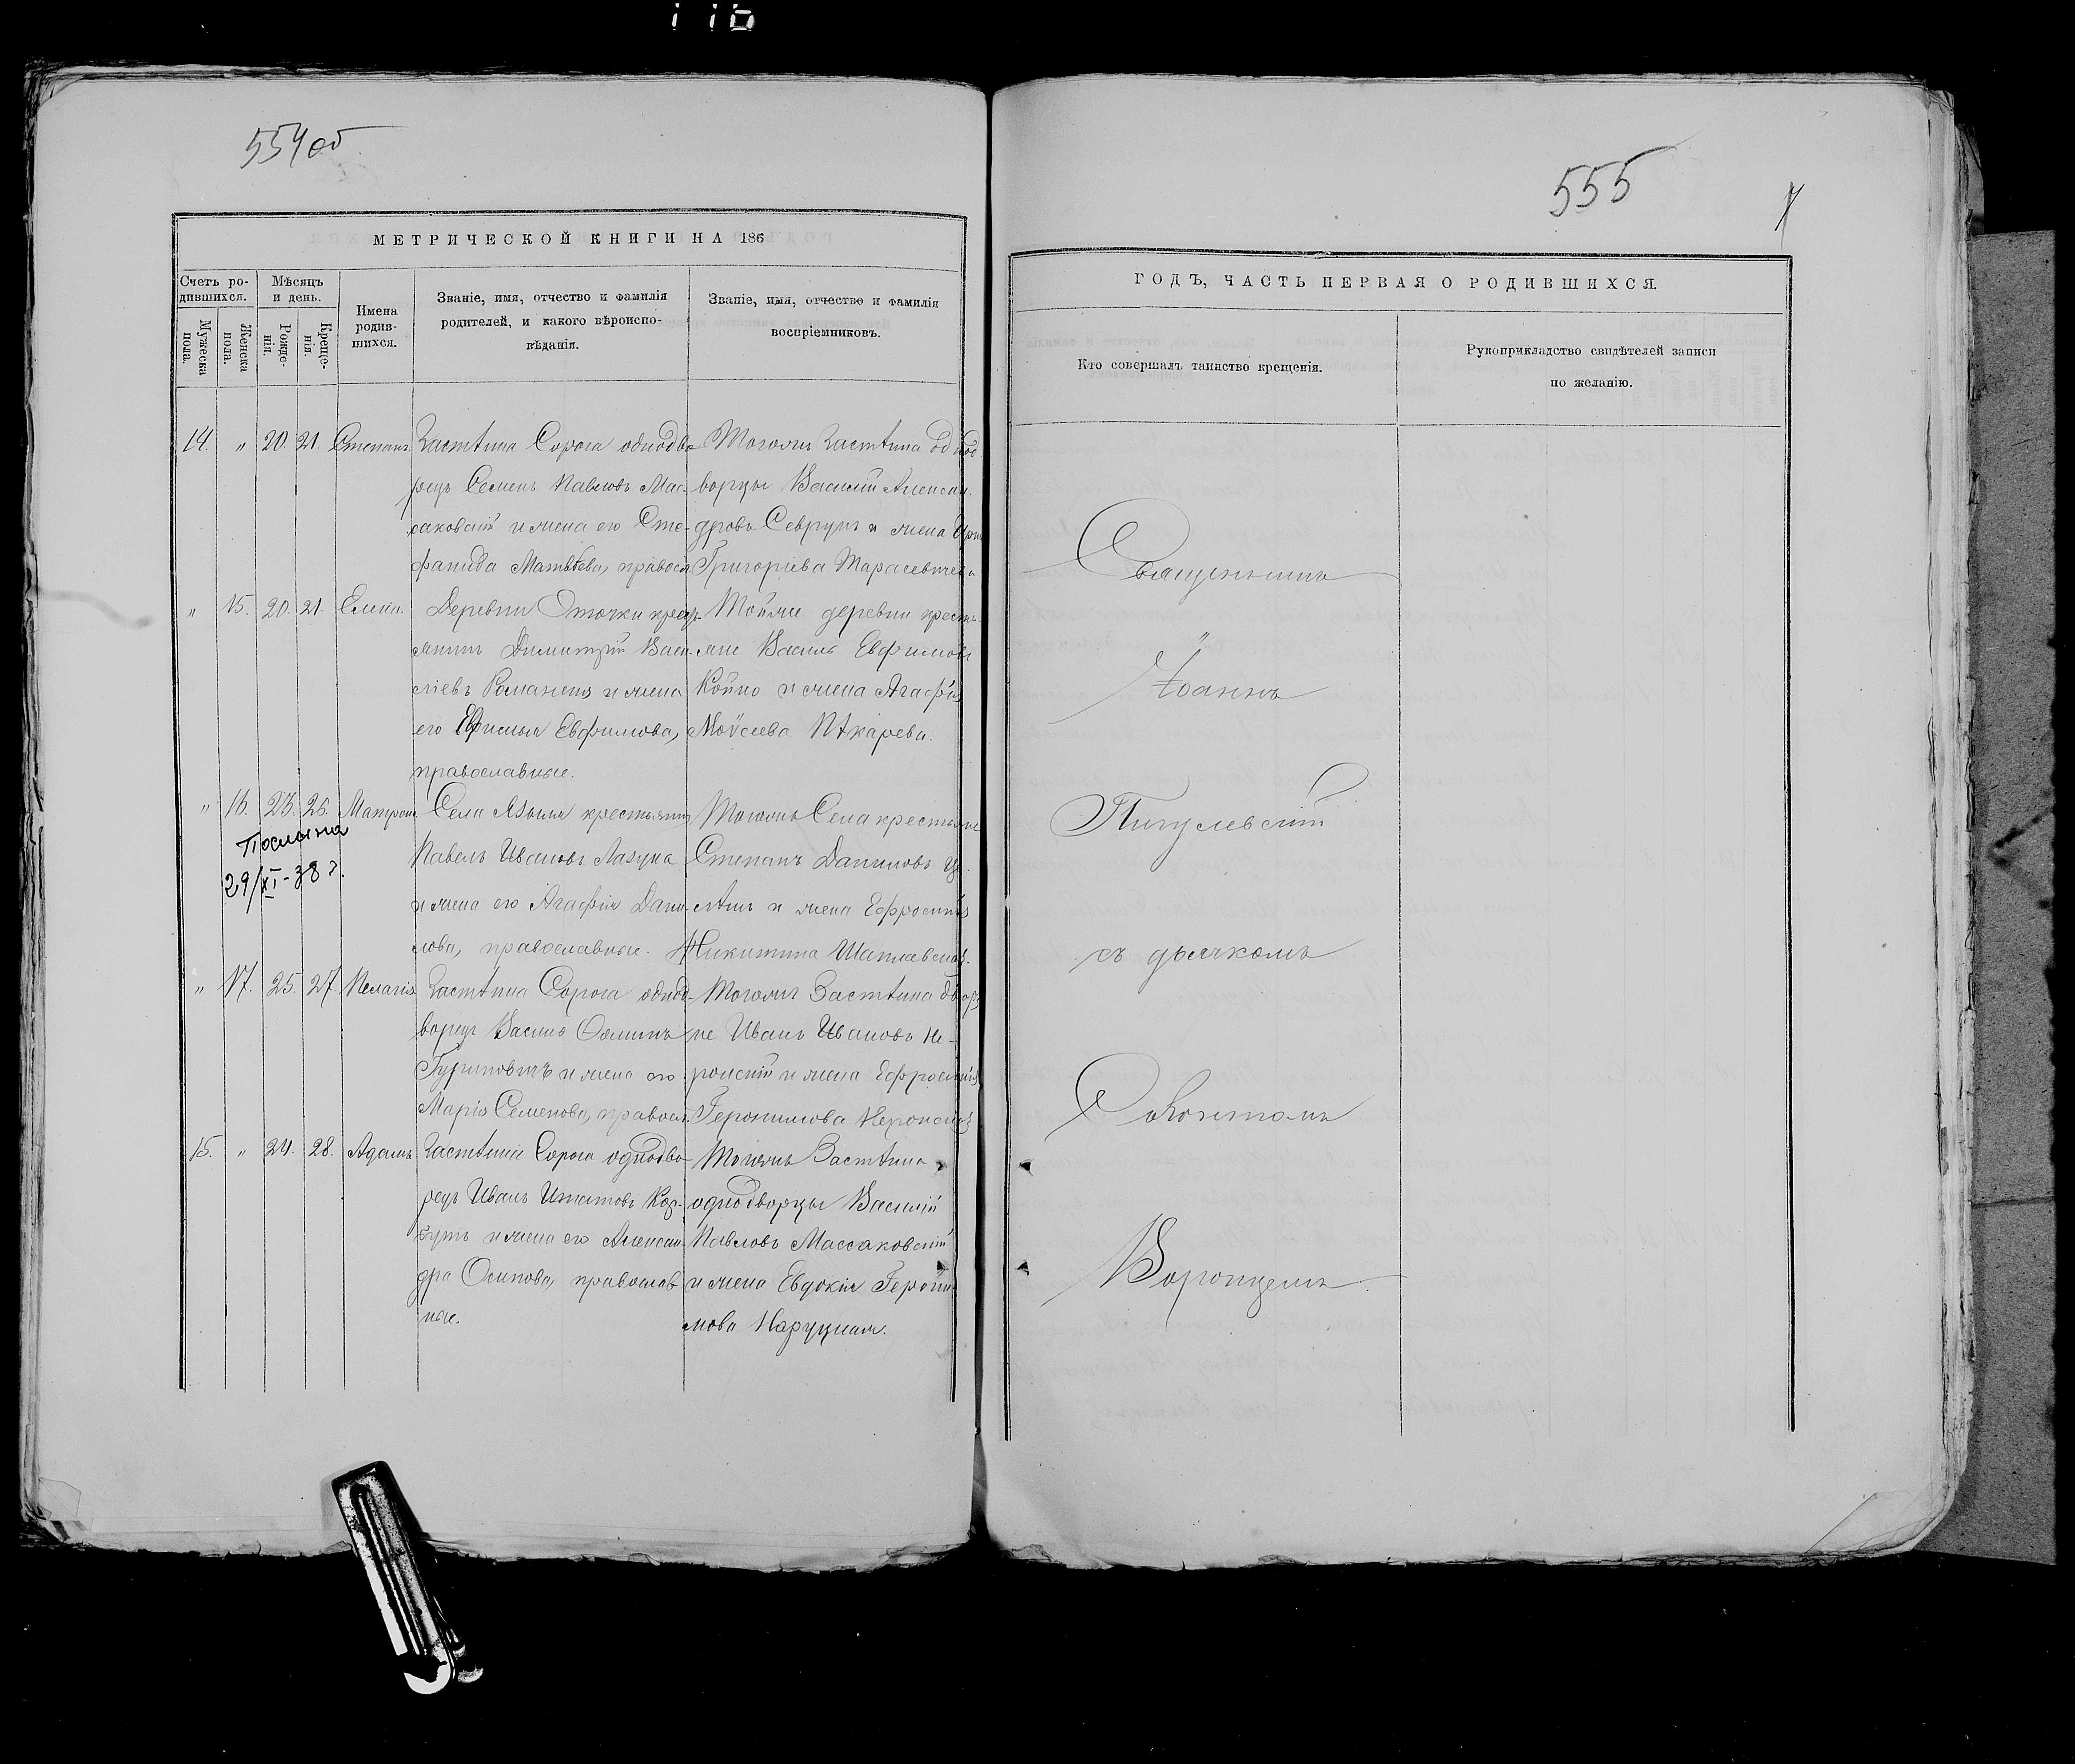 554об
МЕТРИЧЕСКОЙ КНИГИ НА 186
Счетъ родившихся.
Мѣсяцъ и день.
Мужеска пола.
Женска пола.
Рожденія.
Крещенія.
Имена родившихся.
Званіе, имя, отчество и фамилія родителей, и какого вѣроисповѣданія.
Званіе, имя, отчество и фамилія воспріемниковъ.
14. " 20. 21. Степанъ
Застѣнка Сорога однодво-
рецъ Семенъ Павловъ Мас-
саковскій и жена его Сте-
фанида Матвѣева, правосл.
Тогожъ Застѣнка однод
ворцы Василій Алексан-
дровъ Севрукъ и жена
Григоріева Тарасевичева
" 15. 20. 21. Елена.
Деревни Оточки кресть-
янинъ Димитрій Васи-
ліевъ Романенко и жена
его Евфимова,
православные.
Тойже деревни кресть-
яне Василь Евфимовъ
Койно и жена Агафія
Моѵсеева Пѣкарева.
" 16. 23. 26. Матрона
Послана
29/XI-38 г.
Села Языля крестьянинъ
Павелъ Ивановъ Лазука
и жена его Агафія Дани-
лова, православные.
Тогожъ Села крестьяне
Степанъ Даниловъ
и жена Ефросинія
Никитина
" 17. 25. 27. Пелагія
Застѣнка Сорога однод-
ворецъ Василь
Гуриновичъ и жена его
Марія Семенова, правосл.
Тогожъ Застѣнка дворя
не Иванъ Ивановъ Не-
ронскій и жена Ефросинія
Героннимова Неронская
15. " 24. 28. Адамъ
Застѣнка Сорога однодво-
рецъ Иванъ Игнатовъ Коз-
и жена его Алексан-
дра Осипова, православ
ные.
Тогожъ Застѣнка
однодворцы Василій
Павловъ Массаковскій
и жена Евдокія Герони-
мова
555
ГОДЪ, ЧАСТЬ ПЕРВАЯ О РОДИВШИХСЯ.
Кто совершалъ таинство крещенія.
Рукоприкладство свидѣтелей записи
по желанію.
Священникъ
Іоаннъ
Пигулевскій
съ дьячкомъ